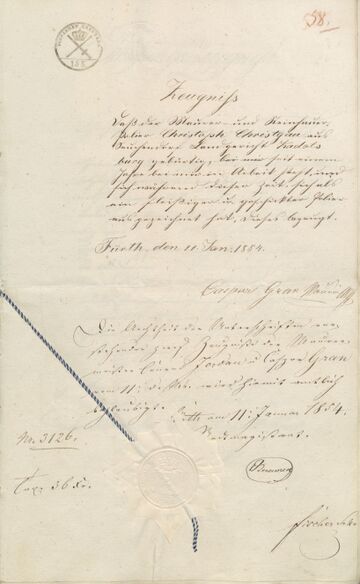 58.
Zeugniß
Daß der Maurer- und Steinhauer-
polier Christoph Christgau aus
Landgericht Kadolz
burg gebürtig, bei mir seit einem
Jahre in Arbeit steht, und
sich während dieser Zeit sich als
ein fleißiger u. geschickter Polier
ausgezeichnet hat, dieses bezeugt.
Fürth, den 10. Jan. 1854.
Caspar Gran
Die Aechtheit der Unterschriften
vorstehender zwei Zeugniße der Maurer-
meister Jordan u. Caspar Gran
vom 11. wird hiermit amtlich
beglaubigt.
Fürth am 11. Januar 1854.
Stadtmagistrat.
Nr. 3126.
Tax. 36 x.